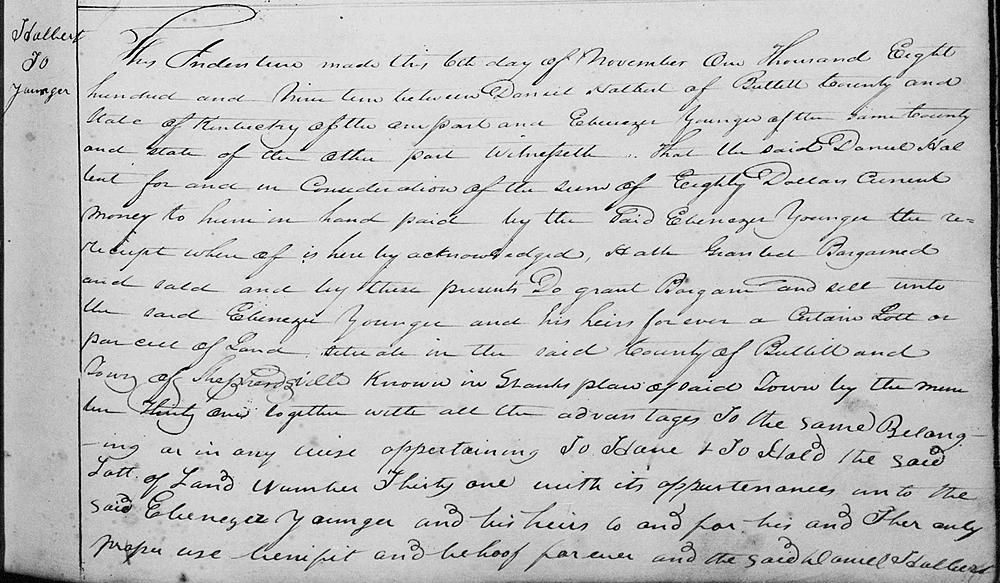 Halbert
To
Younger
This Indenture made this 6th day of November One Thousand Eight
hundred and Nine teen between Daniel Halbert of Bullitt County and
State of Kentucky of the one part and Ebenezer Younger of the Same County
and state of the other part Witnesseth That the said Daniel Hal
bert for and in Consideration of the sum of Eighty Dollars Current
Money to him in hand paid by the said Ebenezer Younger the re-
reciept where of is here by acknowledged, Hath Granted Bargained
and sold and by these presents Do grant Bargain and sell unto
the said Ebenezer Younger and his heirs for ever a Certain Lott or
par cell of Land situate in the said County of Bullitt and
Town of Shepherdsville Known in Grants plan of said Town by the num
ber Thirty one together with all the advantages To the same Belong-
-ing or in any wise appertaining To Have & To Hold the said
Lott of Land Number Thirty one with its appurtenances unto the
said Ebenezer Younger and his heirs to and for his and Ther only
proper use benifit and behoof for ever and the said Daniel Halbert